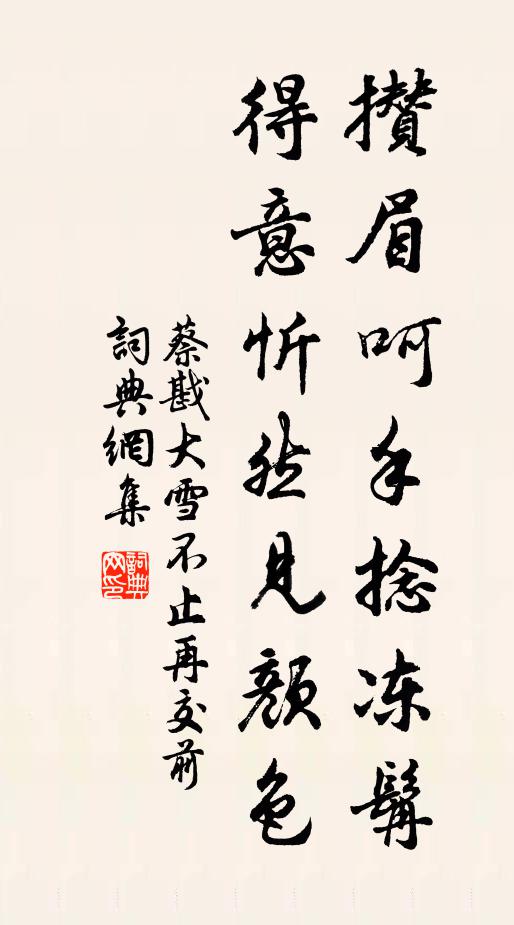 攢眉呵手捻冻髯
得意忻然見顏色
蔡戡大雪不止再交前
詞典網集
詞典网印